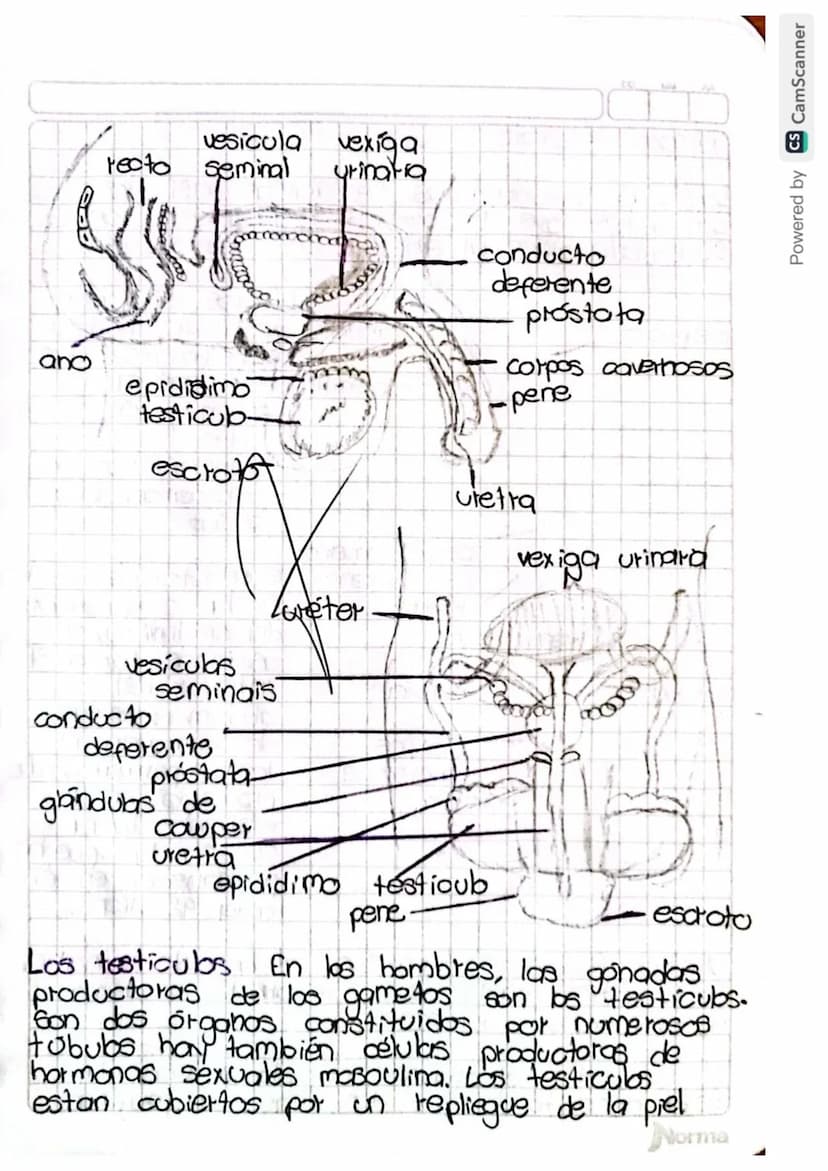 recto
vesicula
seminal
vexíga
yrinatia
conducto
deferente
próstata
ano
corpos cavernosos
pene
epididimo
testicub
escroto
uretra
vexiga urinara
uréter
vesiculas
seminais
conducto
deferente
próstata
glándulas de
cowper
uretra
epididimo
testicub
pene
escroto
Los testiculos En los hombres, las gónadas
productoras de los gametos son los testiculos.
Son dos órganos constituidos por numerosos
túbulos hay también células productoras de
hormonas sexuales masoulina. Los testiculos
estan cubiertos por un repliegue de la piel
Norma
Powered by CS CamScanner